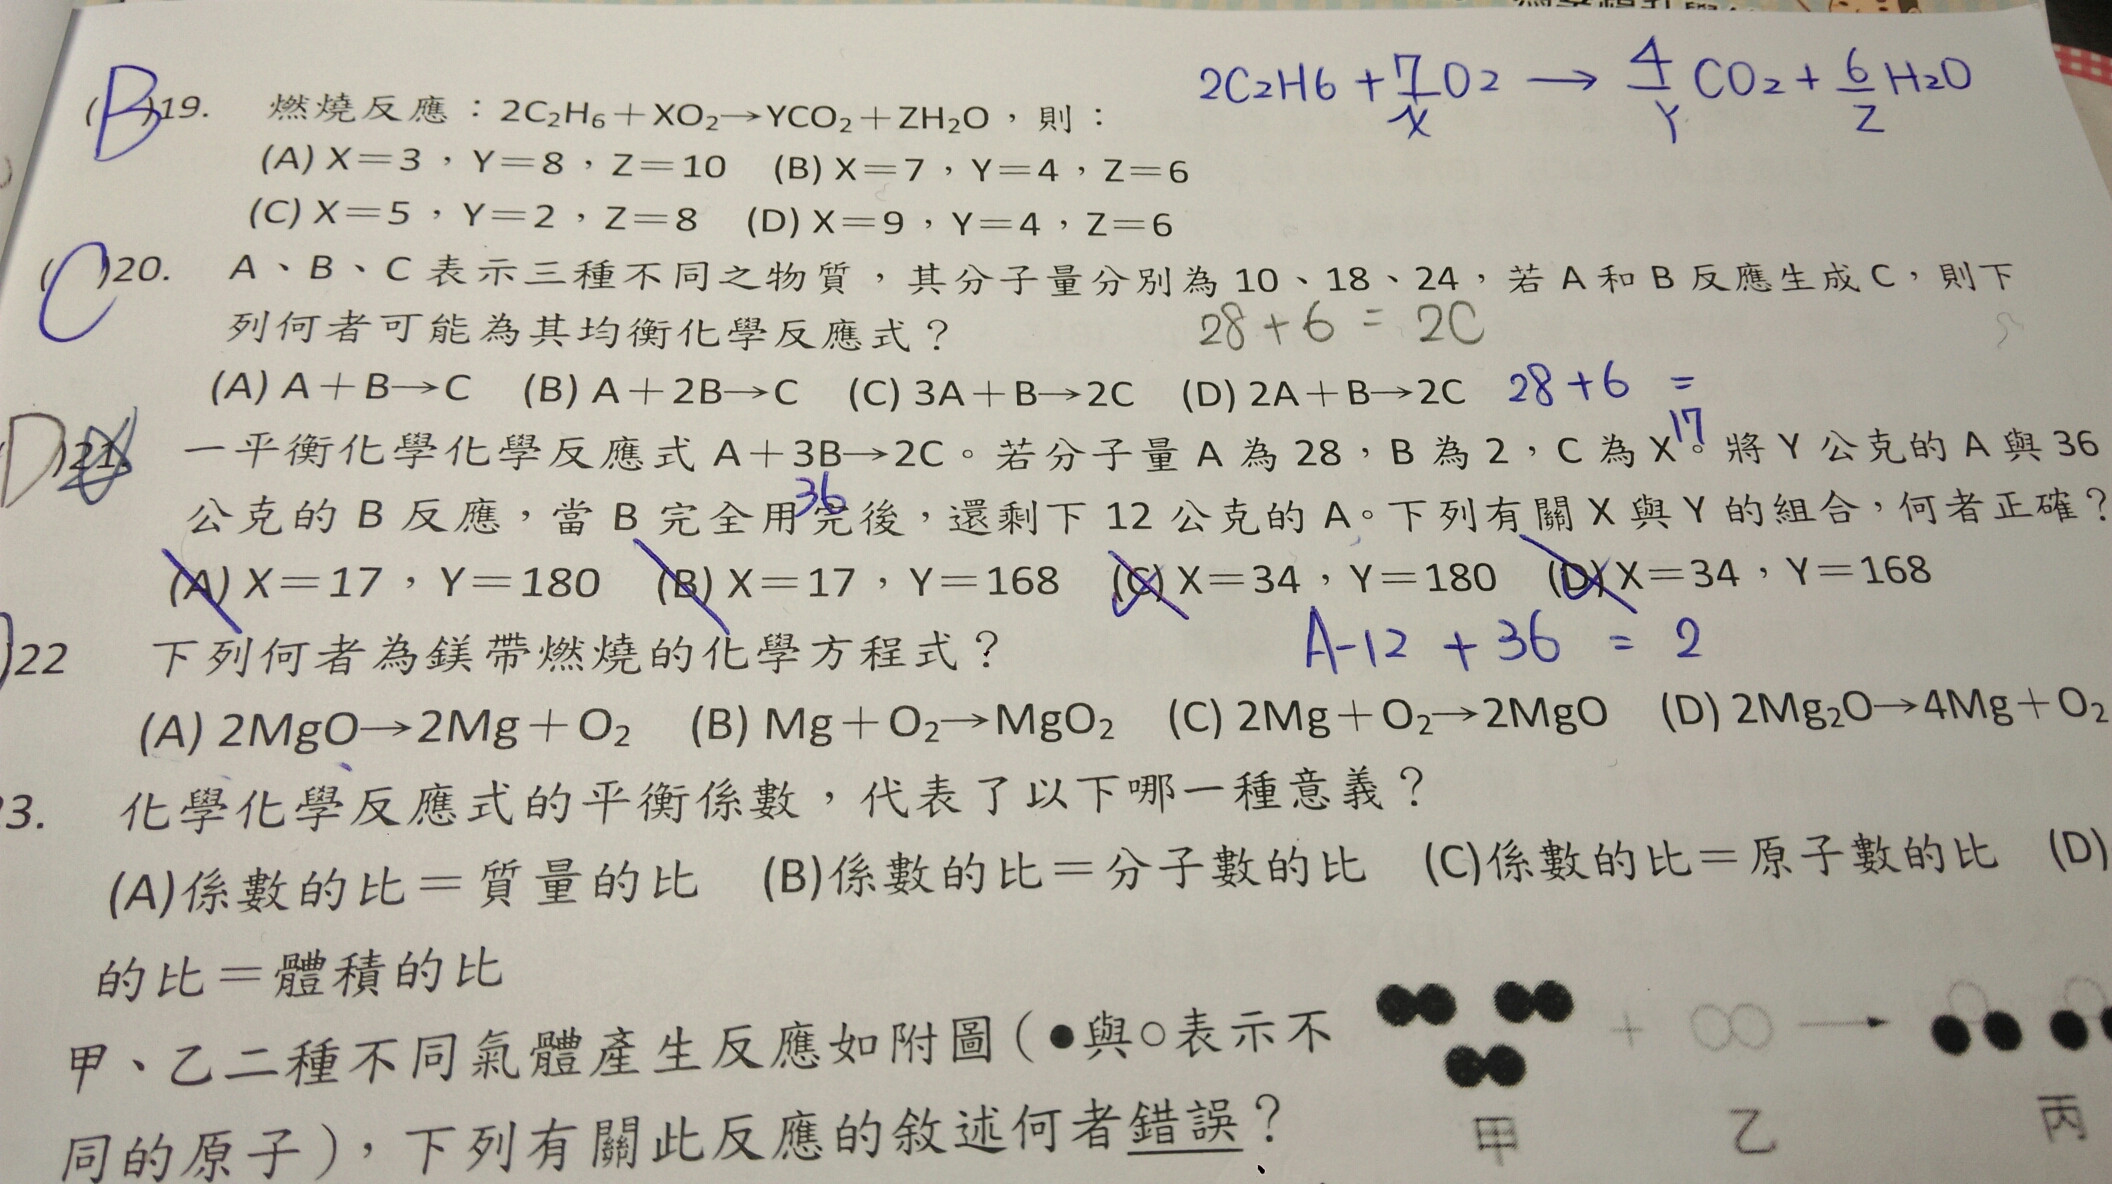 2C2H6 + 7 O2 → 4 CO2 + 6 H2O
X Y Z
(B)19. 燃燒反應：2C₂H₆＋XO₂→YCO₂＋ZH₂O，則：
(A) X＝3，Y＝8，Z＝10 (B) X＝7，Y＝4，Z＝6
(C) X＝5，Y＝2，Z＝8 (D) X＝9，Y＝4，Z＝6
(C)20. A、B、C 表示三種不同之物質，其分子量分別為 10、18、24，若 A 和 B 反應生成 C，則下
列何者可能為其均衡化學反應式？
28+6 = 2C
(A) A＋B→C (B) A＋2B→C (C) 3A＋B→2C (D) 2A＋B→2C
28+6 =
17
D )21. 一平衡化學化學反應式 A＋3B→2C。若分子量 A 為 28，B 為 2，C 為 X。將 Y 公克的 A 與 36
36
公克的 B 反應，當 B 完全用完後，還剩下 12 公克的 A。下列有關 X 與 Y 的組合，何者正確？
(A) X＝17，Y＝180 (B) X＝17，Y＝168 (C) X＝34，Y＝180 (D) X＝34，Y＝168
A-12 + 36 = 2
)22 下列何者為鎂帶燃燒的化學方程式？
(A) 2MgO→2Mg＋O₂ (B) Mg＋O₂→MgO₂ (C) 2Mg＋O₂→2MgO (D) 2Mg₂O→4Mg＋O₂
3. 化學化學反應式的平衡係數，代表了以下哪一種意義？
(A)係數的比＝質量的比 (B)係數的比＝分子數的比 (C)係數的比＝原子數的比 (D)
的比＝體積的比
甲、乙二種不同氣體產生反應如附圖（●與○表示不
同的原子），下列有關此反應的敘述何者錯誤？
＋ →
甲 乙 丙